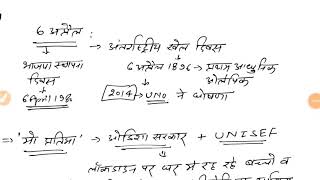 6 अप्रैल : → अंतर्राष्ट्रीय खेल दिवस
भाजपा स्थापना दिवस
6 अप्रैल 1896 → प्रथम आधुनिक ओलंपिक
6 April 198
2014 → UNO ने घोषणा
⇒ 'मो प्रतिमा' → ओडिशा सरकार + UNISEF
लॉकडाउन पर घर में रह रहे बच्चो व